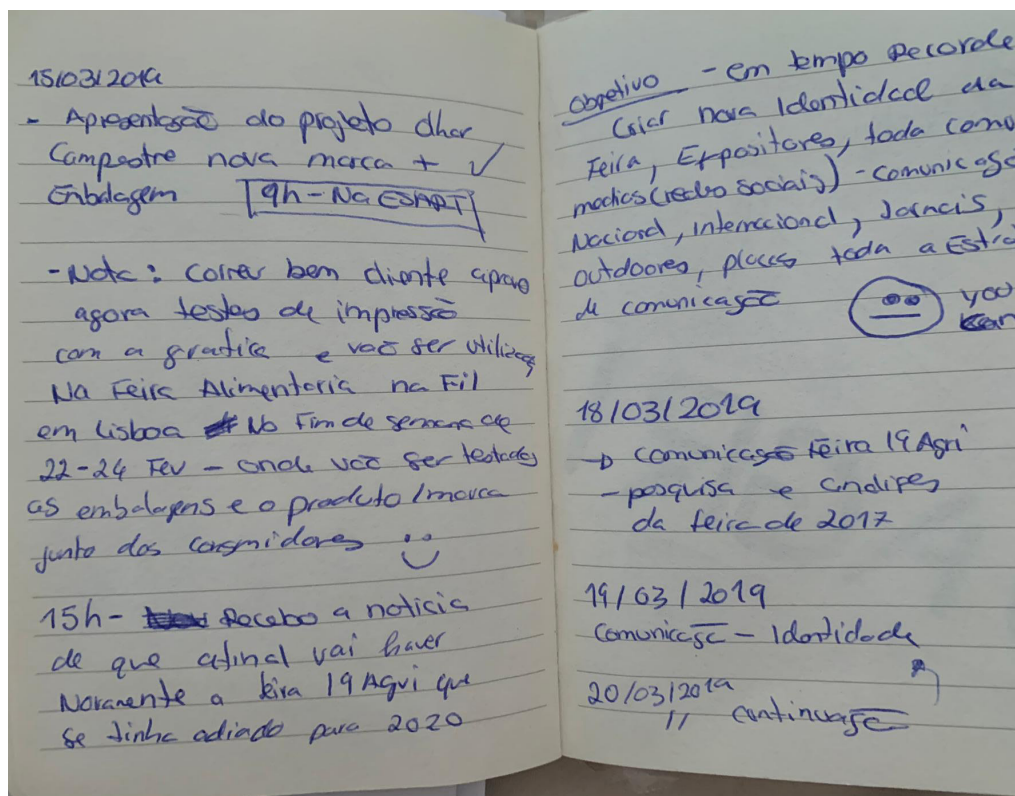 15/03/2019
- Apresentação do projeto dhar
Campestre nova marca + ✓
Embalagem 9h - Na ESART
- Nota: Correu bem cliente aprovo
agora testes de impressão
com a grafica e vão ser utilizas
Na Feira Alimentaria na Fil
em Lisboa No Fim de semana de
22-24 Fev - onde vão ser testados
as embalagens e o produto/marca
junto dos consmidores
15h - Recebo a noticia
de que afinal vai haver
Novamente a feira 19 Agri que
se tinha adiado para 2020
Objetivo - em tempo Recorde
Criar nova Identidade da
Feira, Expositores, toda comu
medios (redes sociais) - comunicação
Nacional, internacional, Jornais,
outdoores, placas toda a Estra
de comunicação you
can
18/03/2019
→ comunicação Feira 19 Agri
- pesquisa e
da feira de 2017
19/03/2019
Comunicação - Identidade
20/03/2019
" continuação